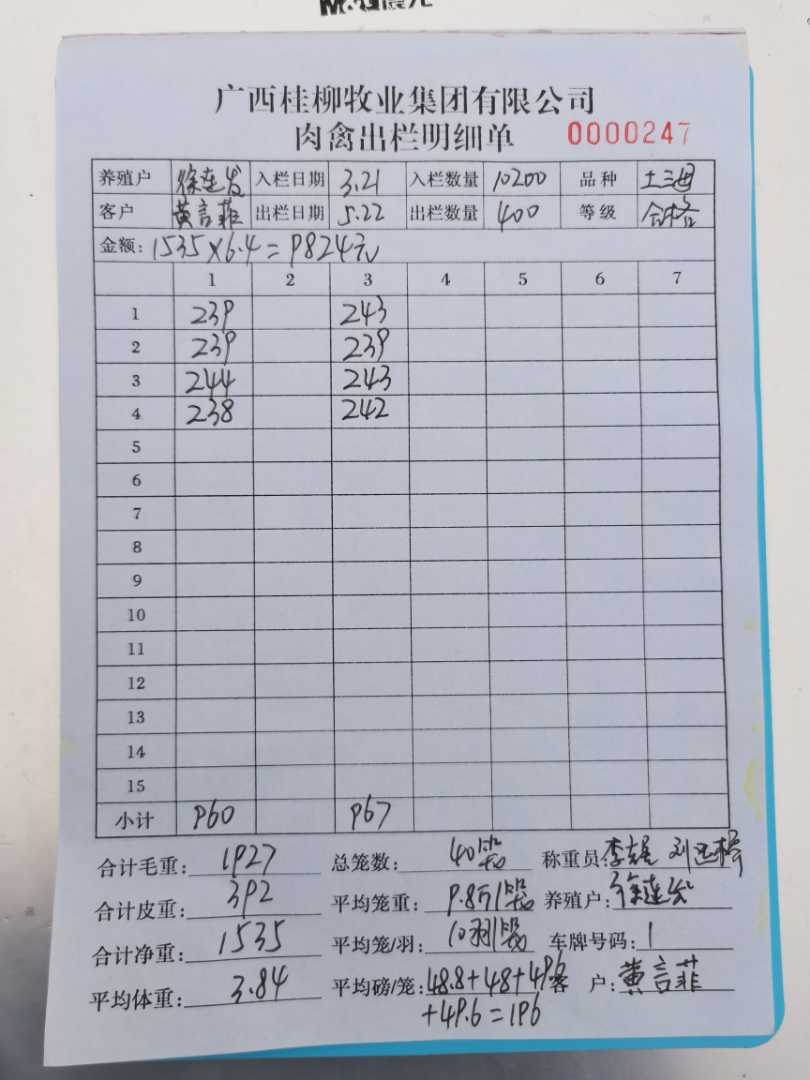 M&G晨光
广西桂柳牧业集团有限公司
肉禽出栏明细单 0000247
养殖户 徐连发 入栏日期 3.21 入栏数量 10200 品种 土三母
客户 黄言菲 出栏日期 5.22 出栏数量 400 等级 合格
金额: 1535×6.4=9824元
1 2 3 4 5 6 7
1 239 243
2 239 239
3 244 243
4 238 242
5
6
7
8
9
10
11
12
13
14
15
小计 960 967
合计毛重: 1927 总笼数: 40笼 称重员: 刘
合计皮重: 392 平均笼重: 9.8斤/笼 养殖户: 徐连发
合计净重: 1535 平均笼/羽: 10羽/笼 车牌号码: 1
平均体重: 3.84 平均磅/笼: 48.8+48+49.6 客户: 黄言菲
+49.6=196